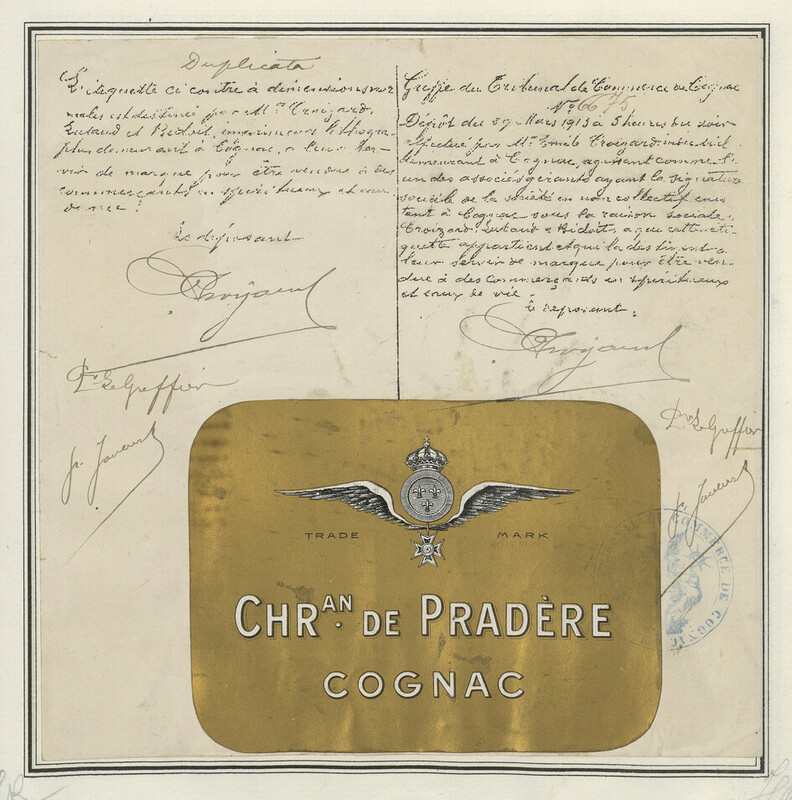 Duplicata
L'étiquette ci contre à dimensions nor
males est destinée par MM. Croizard,
Lutaud et Bidoit, imprimeurs lithogra-
phes demeurant à Cognac, à leur ser-
vir de marque pour être vendue à des
commerçants en spiritueux et eaux
de vie.
Le déposant
Pr Le Greffier
Greffe du Tribunal de Commerce de Cognac
No 6675
Dépôt du 29 Mars 1913 à 5 heures du soir
effectué par Mr Emile Croizard industriel
demeurant à Cognac, agissant comme l'
un des associés gérants ayant la signature
sociale de la société en nom collectif exis
tant à Cognac sous la raison sociale:
Croizard, Lutaud & Bidoit, a qui cette éti-
quette appartient et qui la destinent à
leur servir de marque pour être ven-
due à des commerçants en spiritueux
et eaux de vie.
Le déposant:
Pr Le Greffier
TRADE MARK
CHRAN. DE PRADÈRE
COGNAC
DE COMMERCE DE COGNAC